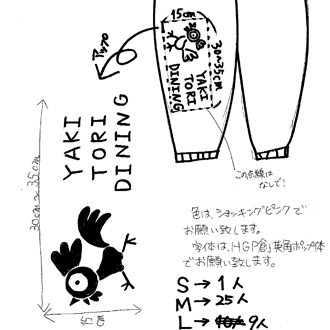 15cm
30~35cm
YAKI
TORI
DINING
アップ
YAKI
TORI
DINING
30cm~35cm
15cm
この点線は
なしで!
色は、ショッキングピンクで
お願い致します。
字体は、HGP創英角ポップ体
でお願い致します。
S→1人
M→25人
L→9人